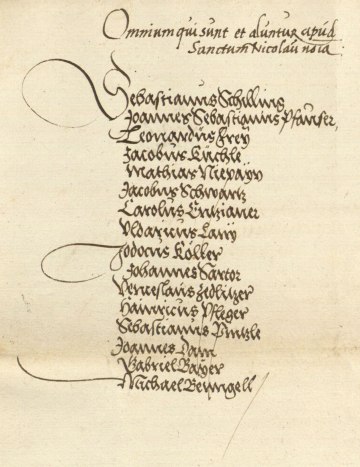 Omnium qui sunt et aluntur apud
Sanctum Nicolaū noīa
Sebastianus Schilling
Joannes Sebastianus Pfauser
Leonardus Frey
Jacobus Küchle
Mathias
Jacobus Schwartz
Carolus Entzianer
Vldaricus
Jodocus Köller
Johannes Sartor
Venceslaus Zedlitzer
Hainricus Pfleger
Sebastianus
Joannes
Gabriel Bayer
Michael